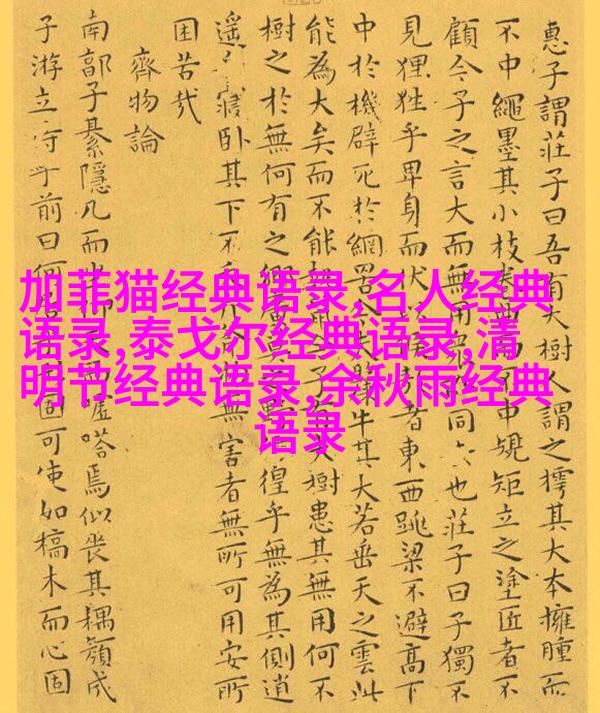 加菲猫经典语录,名人经典
语录,泰戈尔经典语录,清
明节经典语录,余秋雨经典
语录
惠子謂莊子曰吾有大樹人謂之樗其大本擁腫而
不中繩墨其小枝卷曲而不中規矩立之塗匠者不
顧今子之言大而無用眾同也莊子曰子獨不
見狸狌乎卑身而伏者東西跳梁不避高下
中於機辟死於網罟今牛其大若垂天之雲此
能為大矣而不能鼠今子大樹患其無用何不
樹之於無何有之鄉徨乎無為其側逍
遙寢臥其下不無害者無所可用安所
困苦哉
齊物論
南郭子綦隱几而坐噓嗒焉似喪其耦顏成
子游立侍乎前曰何固可使如槁木而心固